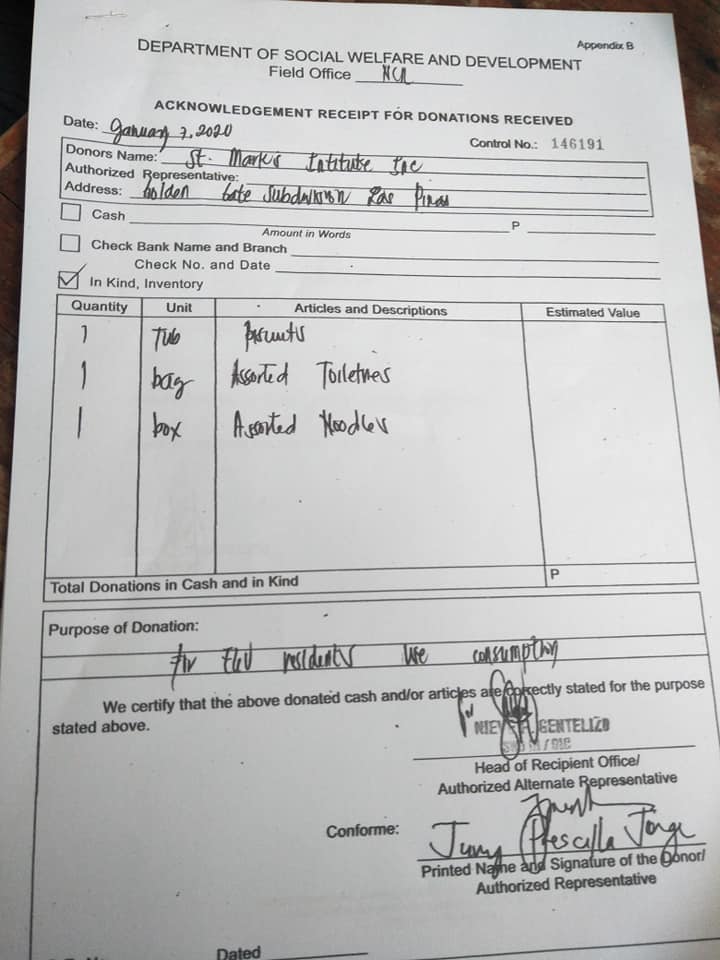 Appendix B
DEPARTMENT OF SOCIAL WELFARE AND DEVELOPMENT
Field Office NCR
ACKNOWLEDGEMENT RECEIPT FOR DONATIONS RECEIVED
Date: January 7, 2020
Control No.: 146191
Donors Name: St. Mark's Institute Inc
Authorized Representative:
Address: Golden Gate Subdivision Las Pinas
Cash P
Amount in Words
Check Bank Name and Branch
Check No. and Date
In Kind, Inventory
Quantity Unit Articles and Descriptions Estimated Value
1 Tub
1 bag Assorted Toiletries
1 box Assorted Noodles
Total Donations in Cash and in Kind P
Purpose of Donation:
for residents use consumption
We certify that the above donated cash and/or articles are correctly stated for the purpose
stated above.
GENTELIZO
/ OIC
Head of Recipient Office/
Authorized Alternate Representative
Conforme: Prescilla Jorge
Printed Name and Signature of the Donor/
Authorized Representative
Dated